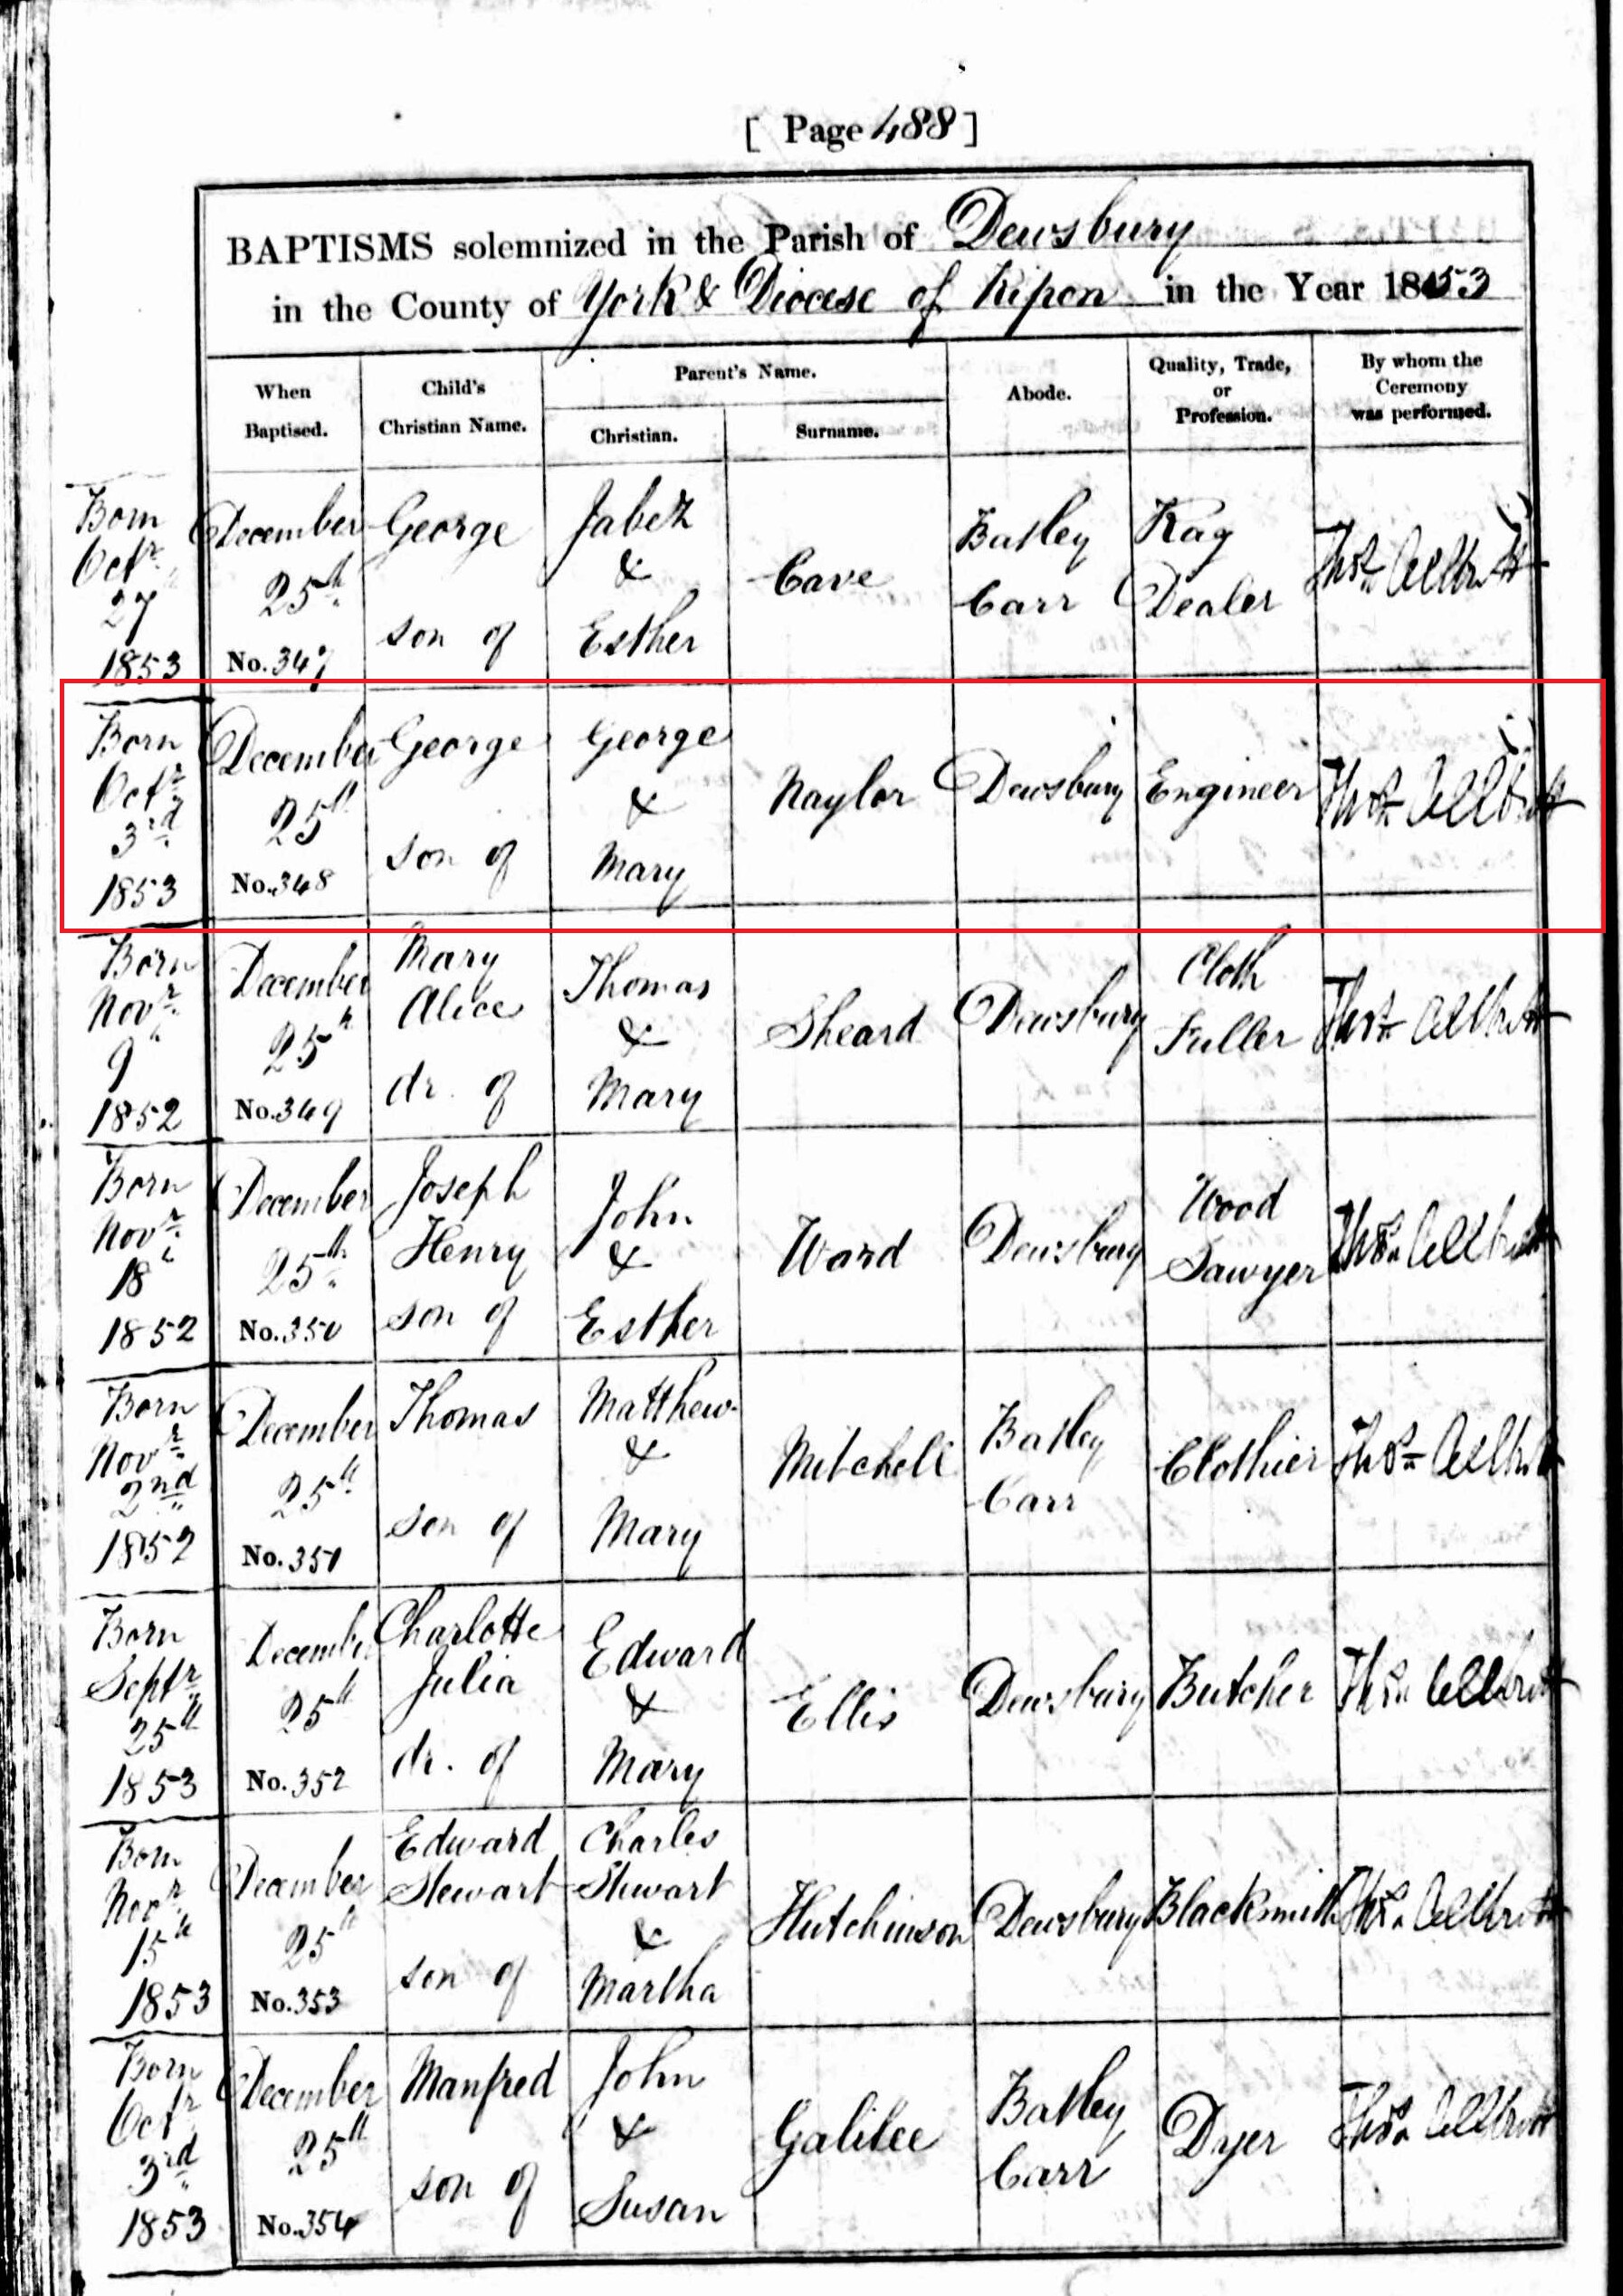 [ Page 488 ]
BAPTISMS solemnized in the Parish of Dewsbury
in the County of York & Diocese of Ripon in the Year 1853
When Baptised.
Child's Christian Name.
Parent's Name.
Christian.
Surname.
Abode.
Quality, Trade, or Profession.
By whom the Ceremony was performed.
Born Octr 27 1853
December 25th
No. 347
George
son of
Jabez
&
Esther
Cave
Batley
Carr
Rag
Dealer
Thos Allbutt
Born Octr 3rd 1853
December 25th
No. 348
George
son of
George
&
Mary
Naylor
Dewsbury
Engineer
Thos Allbutt
Born Novr 9 1852
December 25th
No. 349
Mary
Alice
dr. of
Thomas
&
Mary
Sheard
Dewsbury
Cloth
Fuller
Thos Allbutt
Born Novr 18 1852
December 25th
No. 350
Joseph
Henry
son of
John
&
Esther
Ward
Dewsbury
Wood
Sawyer
Thos Allbutt
Born Novr 2nd 1852
December 25th
No. 351
Thomas
son of
Matthew
&
Mary
Mitchell
Batley
Carr
Clothier
Thos Allbutt
Born Septr 25th 1853
December 25th
No. 352
Charlotte
Julia
dr. of
Edward
&
Mary
Ellis
Dewsbury
Butcher
Thos Allbutt
Born Novr 15th 1853
December 25th
No. 353
Edward
Stewart
son of
Charles
Stewart
&
Martha
Hutchinson
Dewsbury
Blacksmith
Thos Allbutt
Born Octr 3rd 1853
December 25th
No. 354
Manfred
son of
John
&
Susan
Galilee
Batley
Carr
Dyer
Thos Allbutt